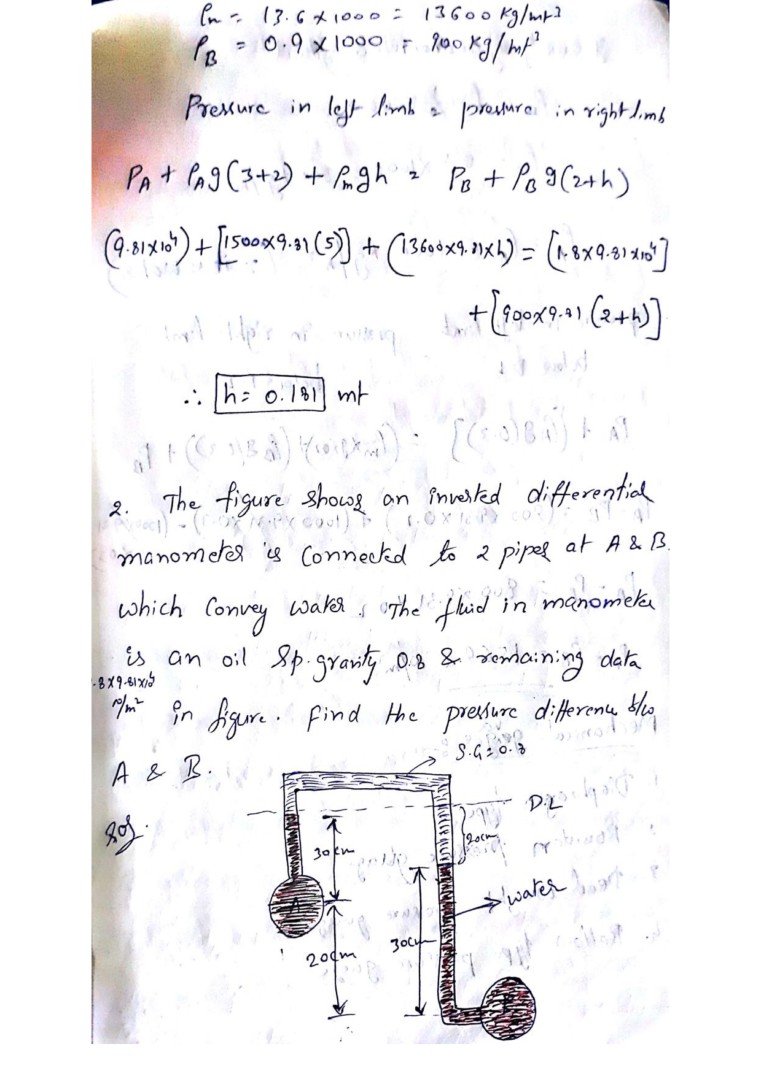 ρm = 13.6 x 1000 = 13600 kg/mt³
ρB = 0.9 x 1000 = 900 kg/mt³
Pressure in left limb = pressure in right limb
PA + ρAg(3+2) + ρmgh = PB + ρB g(2+h)
(9.81x10⁴) + [1500x9.81(5)] + (13600x9.81xh) = [1.8x9.81x10⁴]
+ [900x9.81(2+h)]
∴ h = 0.181 mt
2. The figure shows an inverted differential
manometer is connected to 2 pipes at A & B.
which convey water. The fluid in manometer
is an oil Sp.gravity 0.8 & remaining data
.8x9.81x10⁴
N/m² in figure. find the pressure difference b/w
A & B.
S.G = 0.8
Sol.
D.L
20cm
30cm
A
water
30cm
20cm
B